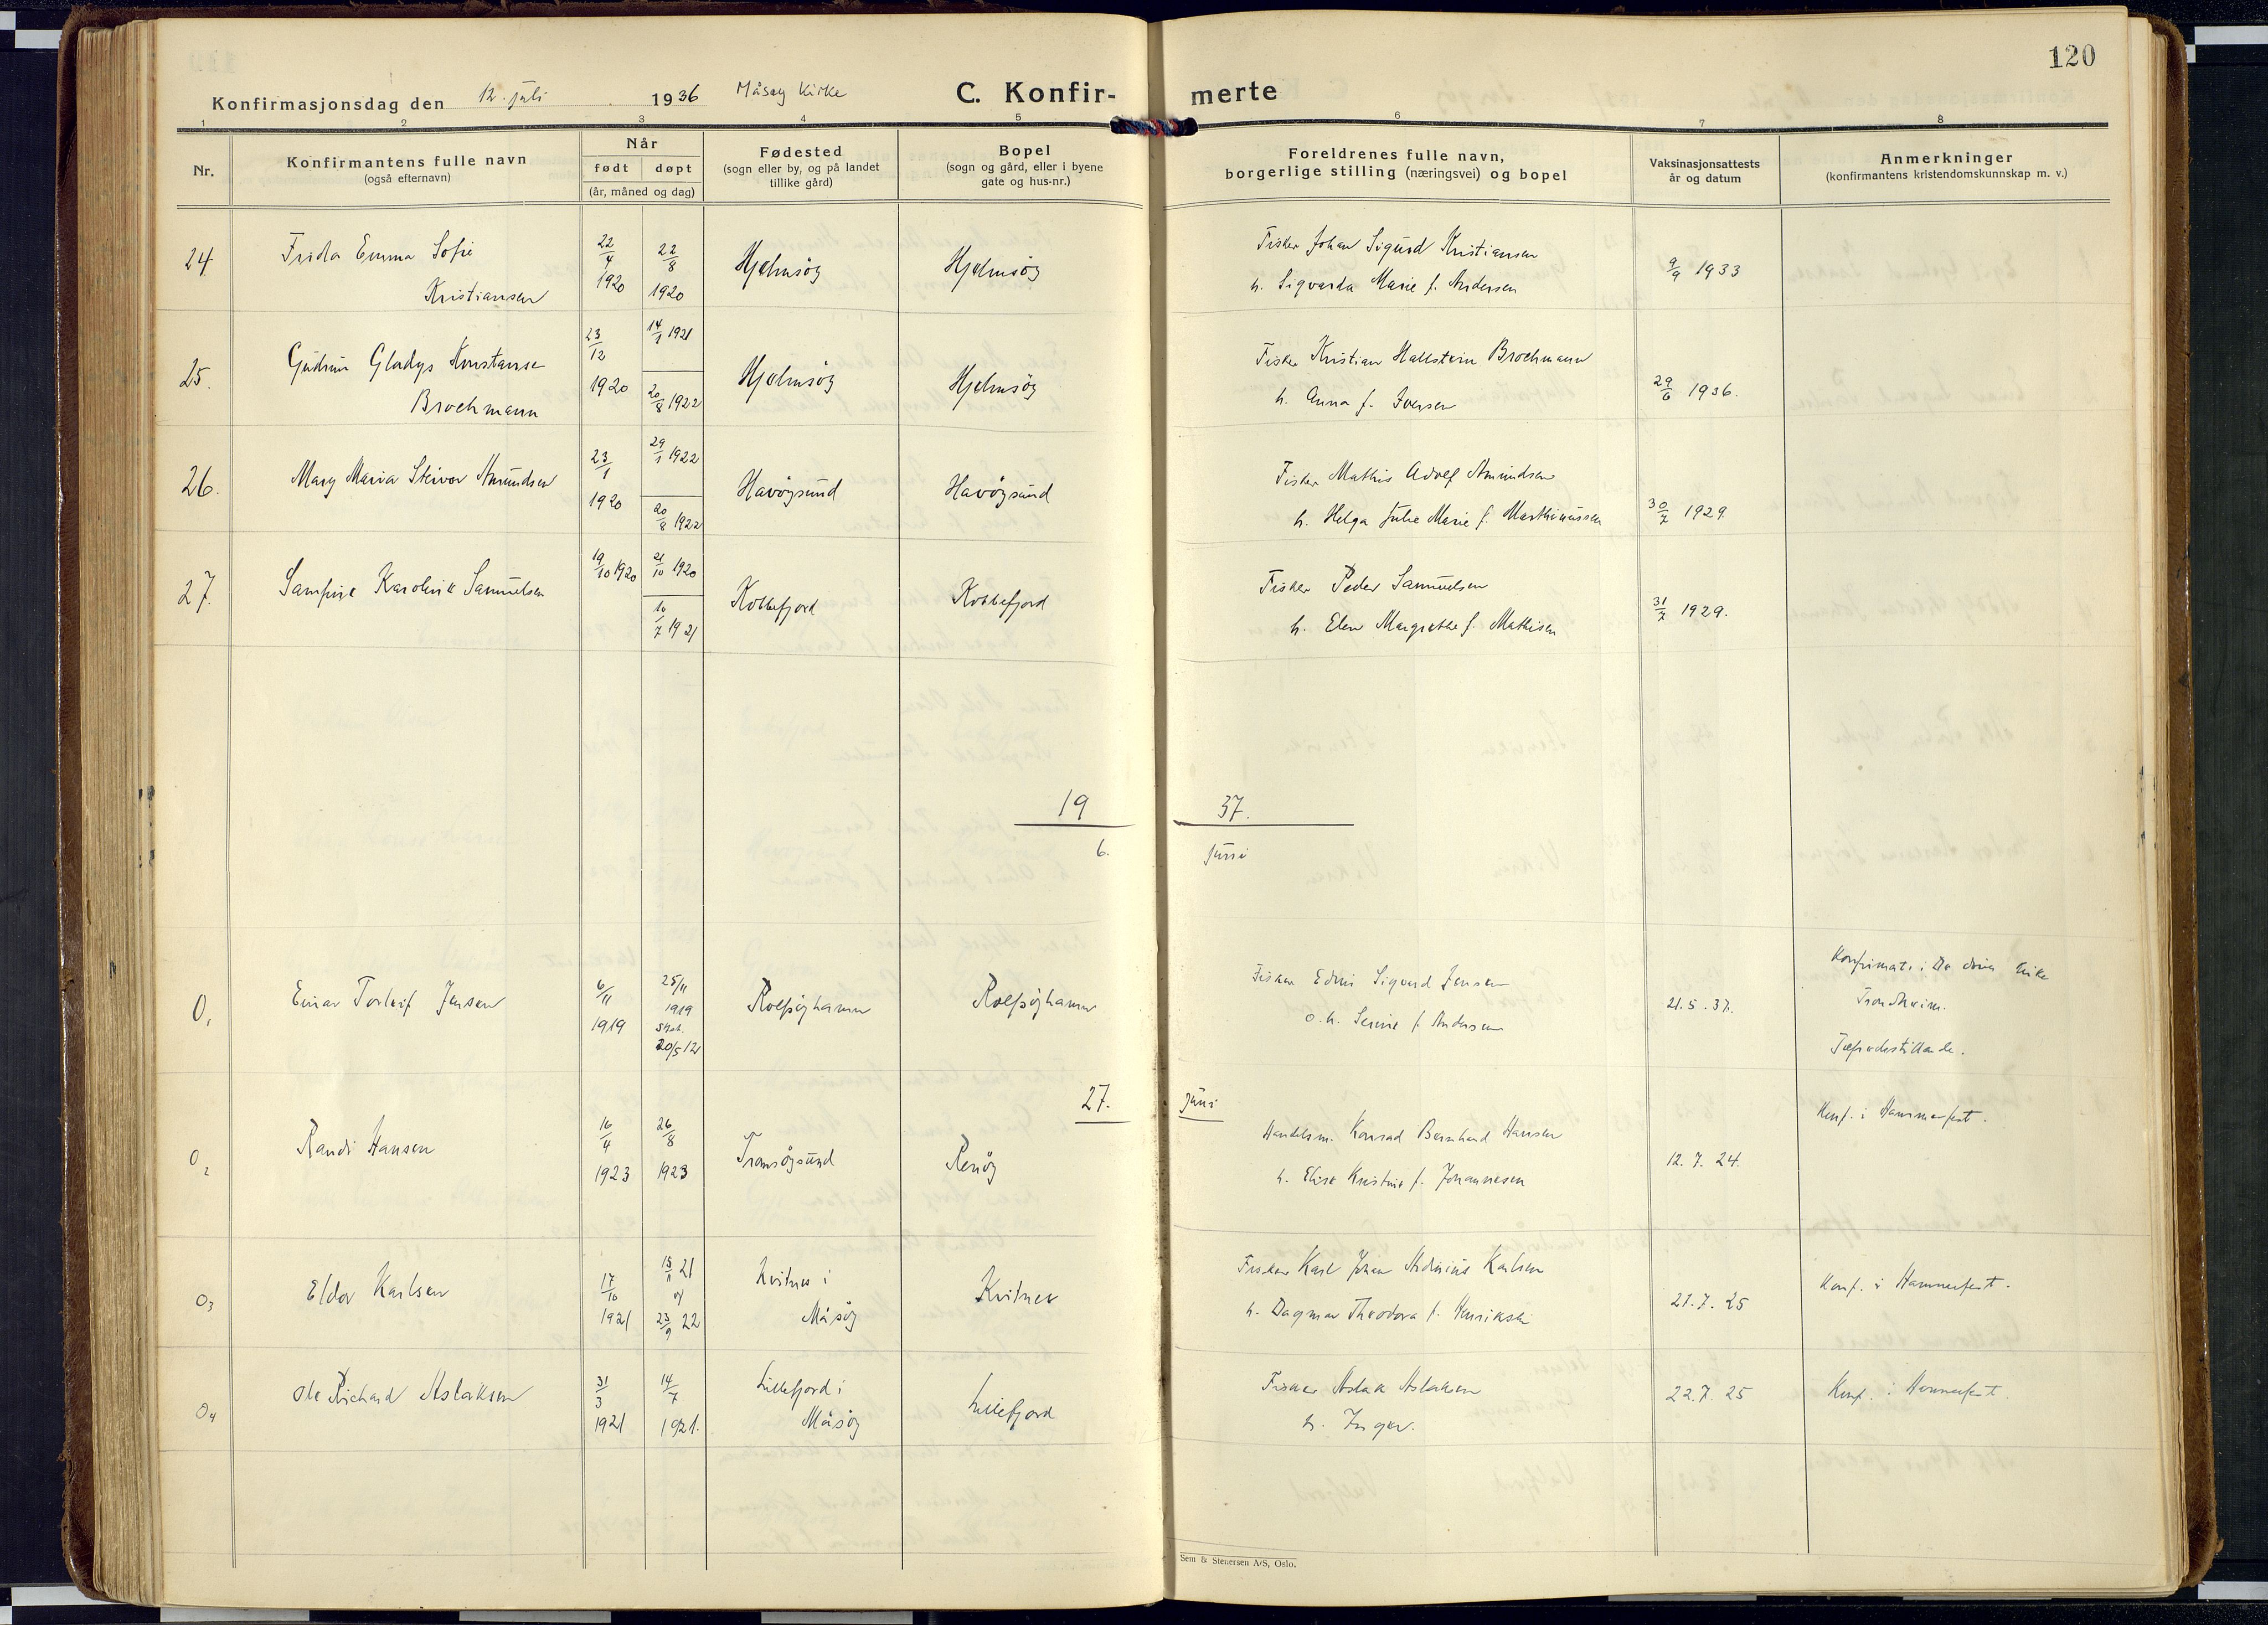 120
Konfirmasjonsdag den 12. juli 1936 Måsøy Kirke C. Konfir- merte
1 2 3 4 5 6 7 8
Nr.
Konfirmantens fulle navn
(også efternavn)
Når
født døpt
(år, måned og dag)
Fødested
(sogn eller by, og på landet
tillike gård)
Bopel
(sogn og gård, eller i byene
gate og hus-nr.)
Foreldrenes fulle navn,
borgerlige stilling (næringsvei) og bopel
Vaksinasjonsattests
år og datum
Anmerkninger
(konfirmantens kristendomskunnskap m. v.)
24 Frida Emma Sofie
Kristiansen
22/4 1920
22/8 1920
Hjelmsöy
Hjelmsöy
Fisker Johan Sigurd Kristiansen
h. Sigvarda Marie f. Andersen
9/9 1933
25. Gudrun Gladys Konstanse
Brochmann
23/12 1920
14/1 1921
20/8 1922
Hjelmsöy
Hjelmsöy
Fisker Kristian Hallstein Brochmann
h. Anna f. Iversen
29/6 1936.
26. Mary Maria Steivor Amundsen
23/1 1920
29/1 1922
20/8 1922
Havöysund
Havöysund
Fisker Mathis Adolf Amundsen
h. Helga Julie Marie f. Marthinussen
30/7 1929.
27. Samfine Karoline Samuelsen
19/10 1920
21/10 1920
10/7 1921
Kobbefjord
Kobbefjord
Fisker Peder Samuelsen
h. Elen Margrethe f. Mathisen
31/7 1929.
19 37.
6. juni
0,1 Einar Torleif Jensen
6/11 1919
25/11 1919
20/5 12
Rolfsöyhamn
Rolfsöyhamn
Fisker Edvin Sigvard Jensen
o. h. Serine f. Andersen
21.5.37.
Konfirmat. i
Trondheim.
Tilfredsstillende.
27. juni
0 2 Randi Hansen
16/4 1923
26/8 1923
Tromsöysund
Renöy
Handelsm. Konrad Bernhard Hansen
h. Elise Kristine f. Johannesen
12.7.24.
Konf. i Hammerfest.
0 3 Eldor Karlsen
17/10 1921
15/11 21
23/9 22
Kvitnes i
Måsöy
Kvitnes
Fisker Karl Johan Karlsen
h. Dagmar Theodora f. Henriksen
21.7.25
Konf. i Hammerfest.
0 4 Ole Richard Aslaksen
31/3 1921
14/7 1921.
Lillefjord i
Måsöy
Lillefjord
Fisker Aslak Aslaksen
h. Inger.
22.7.25
Konf. i Hammerfest.
Sem & Stenersen A/S, Oslo.